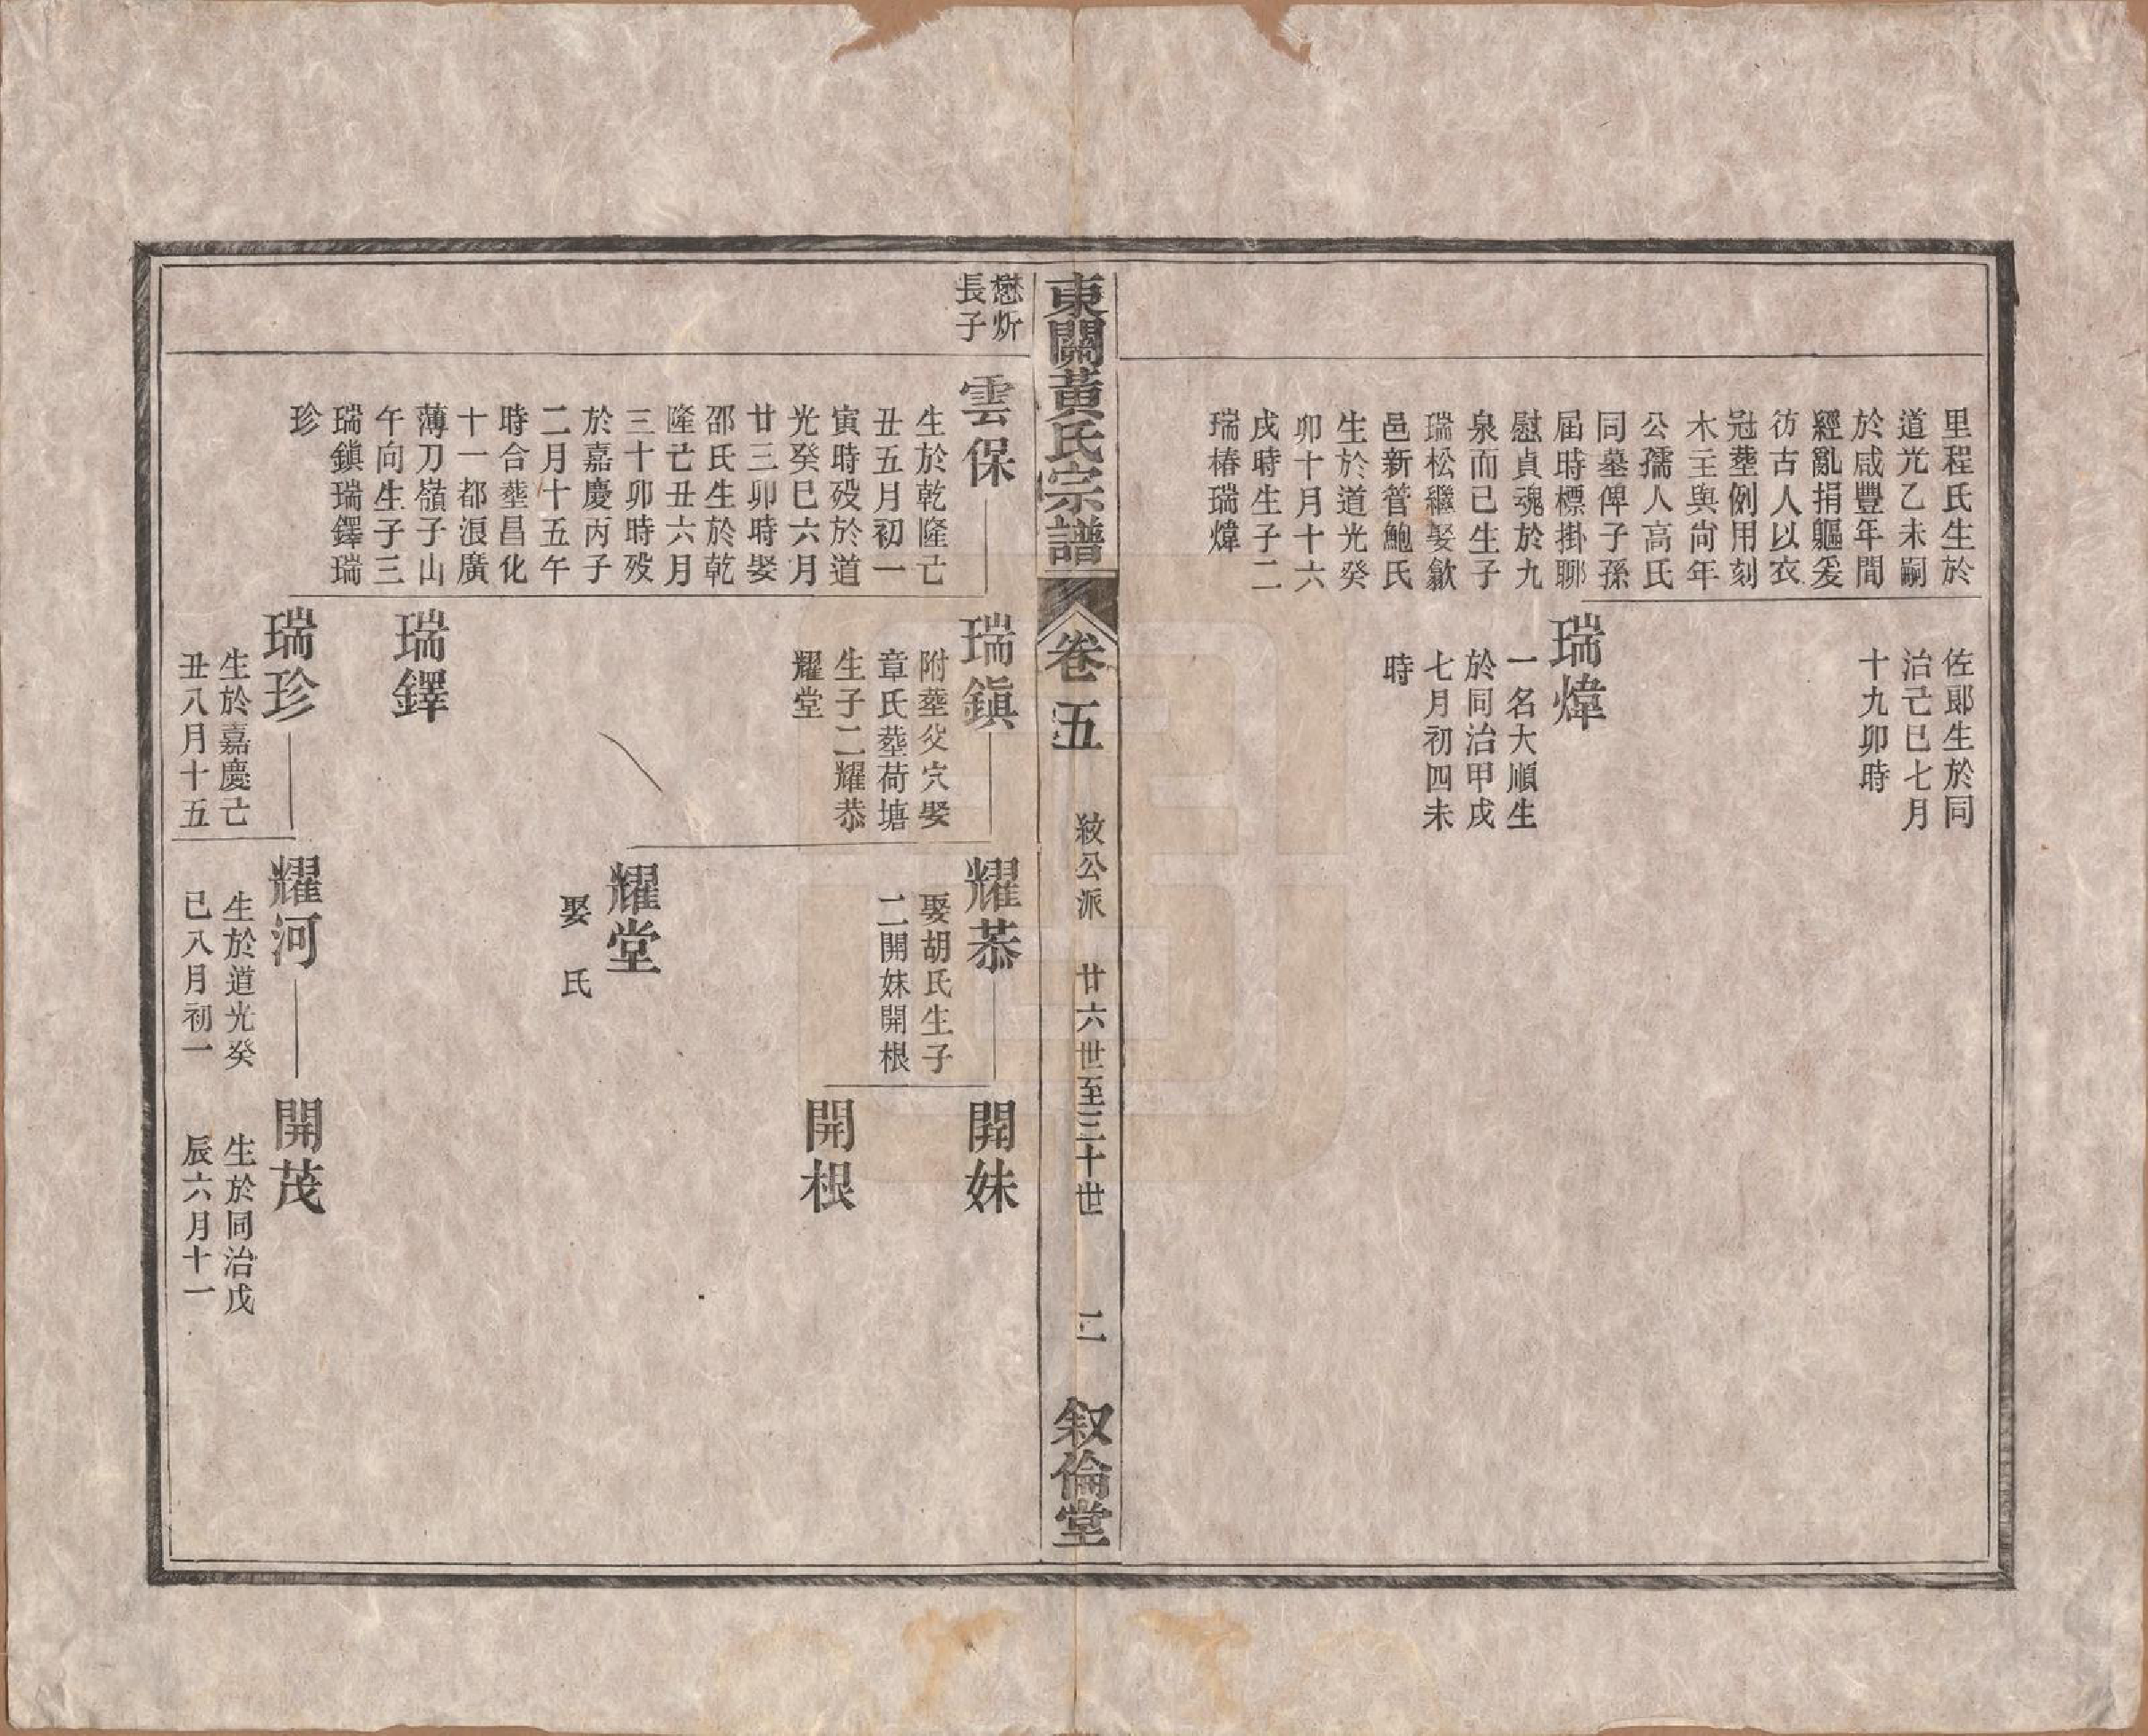 里程氏生於
道光乙未嗣
於咸豐年間
經亂捐軀爰
彷古人以衣
冠塟例用刻
木主與尙年
公孺人高氏
同墓俾子孫
屆時標掛聊
慰貞魂於九
泉而已生子
瑞松繼娶歙
邑新管鮑氏
生於道光癸
卯十月十六
戌時生子二
瑞椿瑞煒
佐郞生於同
治己巳七月
十九卯時
瑞煒
一名大順生
於同治甲戌
七月初四未
時
東關黃氏宗譜
卷五
紋公派
廿六世至三十世
二
叙倫堂
懋炘
長子
雲保
生於乾隆己
丑五月初一
寅時歿於道
光癸巳六月
廿三卯時娶
邵氏生於乾
隆己丑六月
三十卯時歿
於嘉慶丙子
二月十五午
時合塟昌化
十一都浪廣
薄刀嶺子山
午向生子三
瑞鎭瑞鐸瑞
珍
瑞鎭
附塟父穴娶
章氏塟荷塘
生子二耀恭
耀堂
瑞鐸
瑞珍
生於嘉慶己
丑八月十五
耀恭
娶胡氏生子
二開妹開根
耀堂
娶　氏
耀河
生於道光癸
巳八月初一
開妹
開根
開茂
生於同治戊
辰六月十一